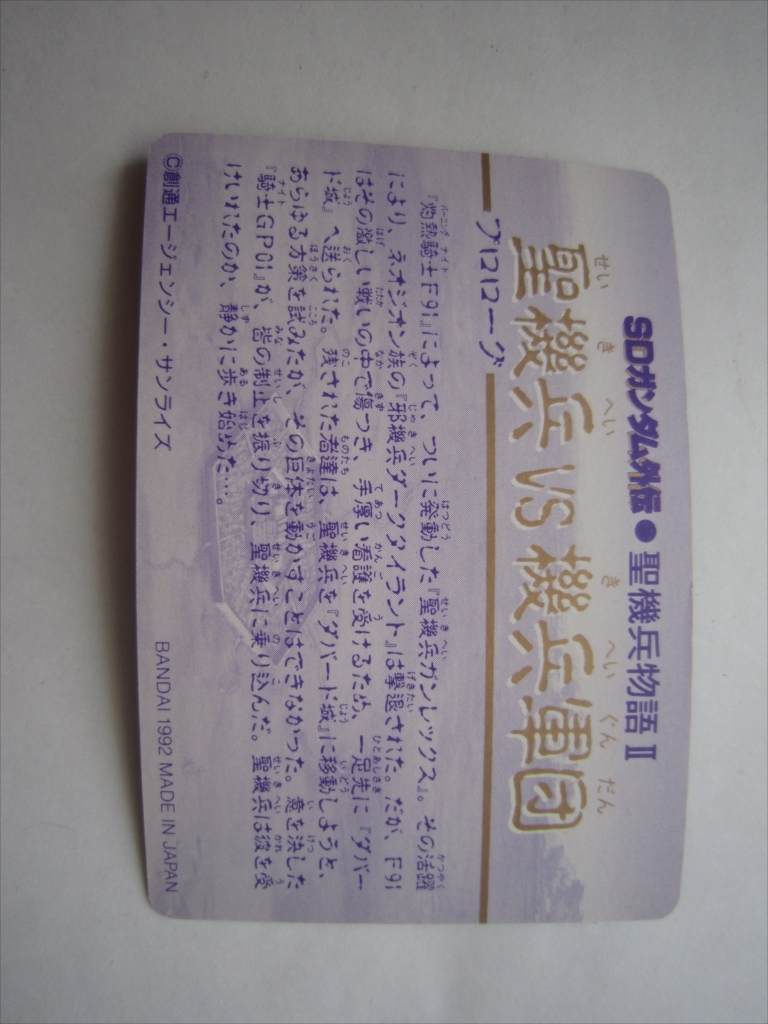 SDガンダム外伝●聖機兵物語Ⅱ
聖機兵VS機兵軍団
せいきへい きへいぐんだん
プロローグ
『灼熱騎士F91』によって、ついに発動した『聖機兵ガンレックス』。その活躍
により、ネオジオン族の『邪機兵ダークタイラント』は撃退された。だが、F91
はその激しい戦いの中で傷つき、手厚い看護を受けるため、一足先に『ダバー
ド城』へ送られた。残された者達は、聖機兵を『ダバード城』に移動しようと、
あらゆる方策を試みたが、その巨体を動かすことはできなかった。意を決した
『騎士GP01』が、皆の制止を振り切り、聖機兵に乗り込んだ。聖機兵は彼を受
けいれたのか、静かに歩き始めた…。
©創通エージェンシー・サンライズ
BANDAI 1992 MADE IN JAPAN